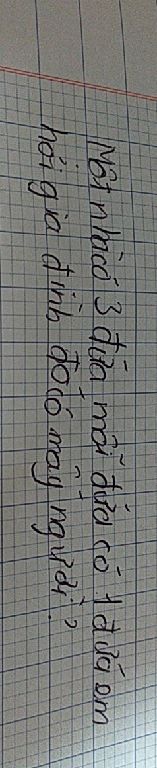 Một nhà có 3 đứa mỗi đứa có 1 đứa em
hỏi gia đình đó có mấy người?